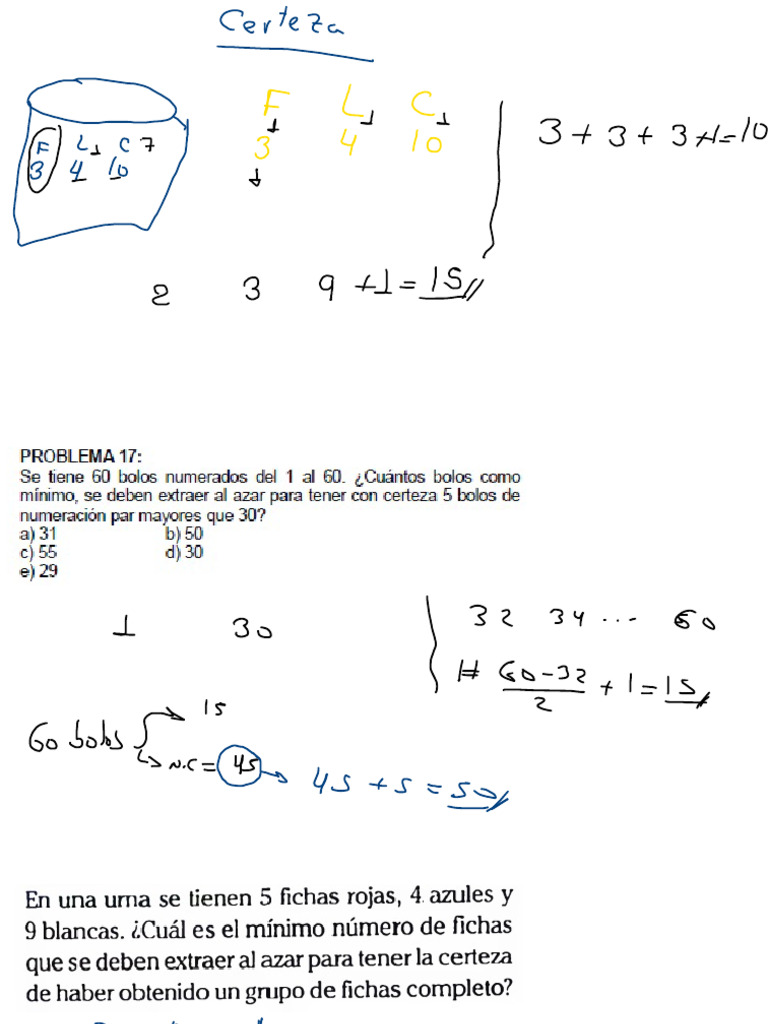 Certeza
F L C
3 4 10
3 + 3 + 3 + 1 = 10
F L 1 C 7
3 4 10
2 3 9 + 1 = 15
PROBLEMA 17:
Se tiene 60 bolos numerados del 1 al 60. ¿Cuántos bolos como
mínimo, se deben extraer al azar para tener con certeza 5 bolos de
numeración par mayores que 30?
a) 31 b) 50
c) 55 d) 30
e) 29
1 30
32 34 ... 60
# 60-32/2 + 1 = 15
60 bolos 15
N.C = 45 → 45 + 5 = 50
En una urna se tienen 5 fichas rojas, 4 azules y
9 blancas. ¿Cuál es el mínimo número de fichas
que se deben extraer al azar para tener la certeza
de haber obtenido un grupo de fichas completo?